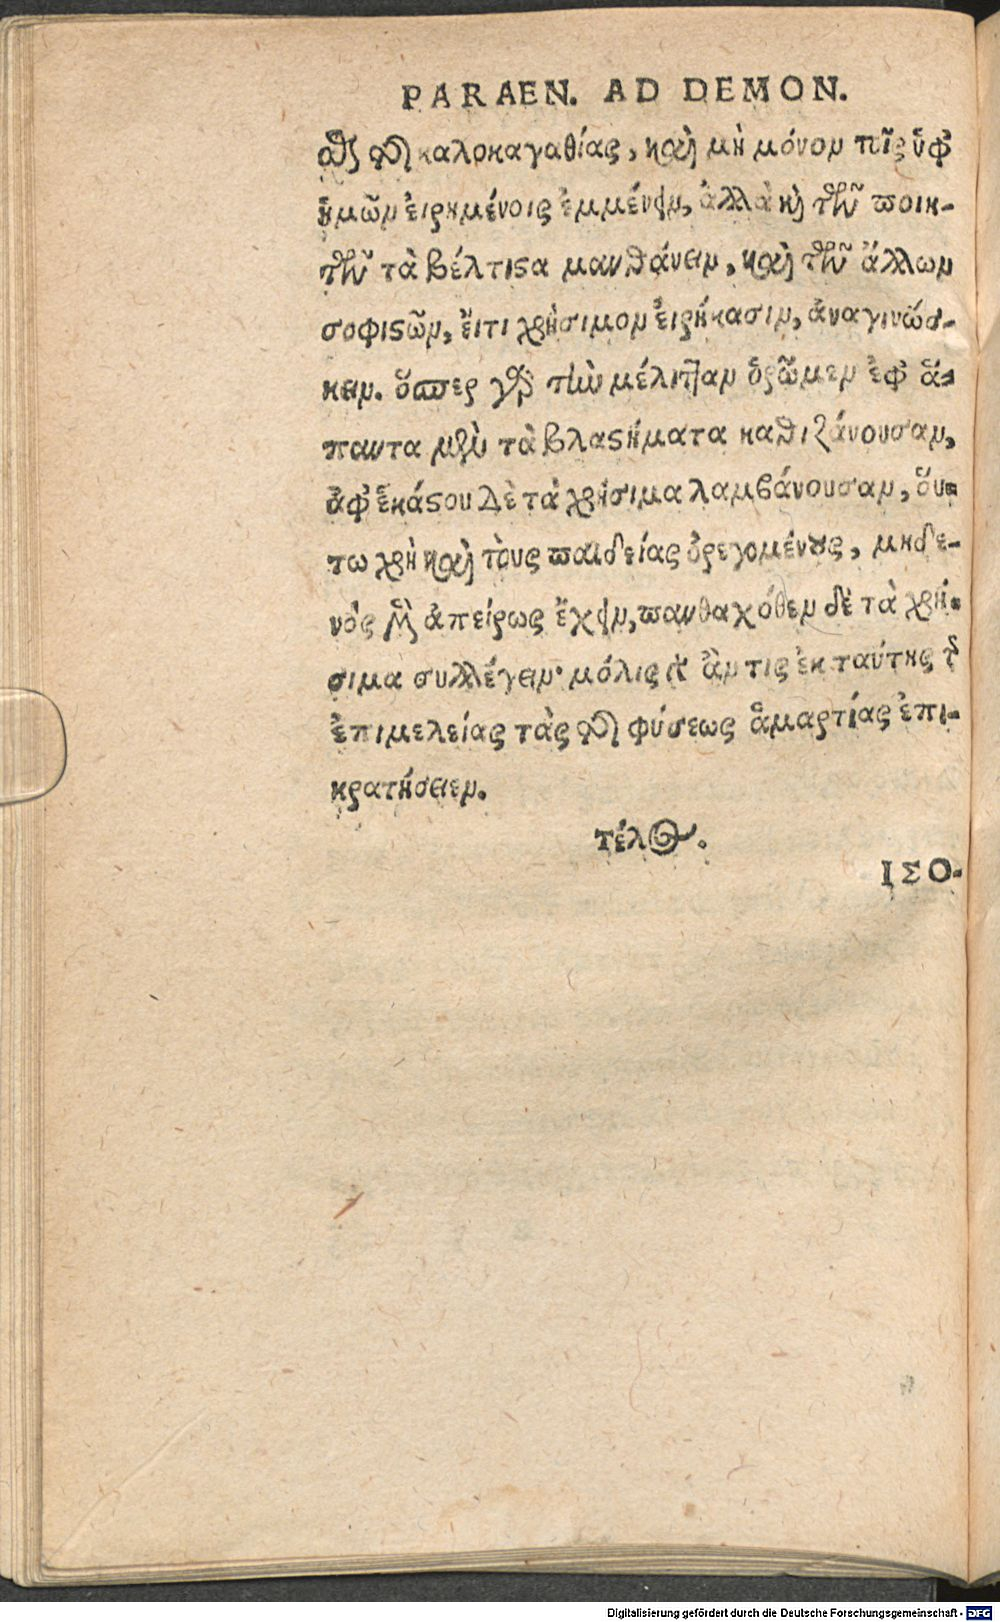 PARAEN. AD DEMON.
ρὶ τῆς καλοκαγαθίας, καὶ μὴ μόνον τοῖς ὑφ'
ἡμῶν εἰρημένοις ἐμμένειν, ἀλλὰ κ̀ τῶν ποιη-
τῶν τὰ βέλτιϛα μανθάνειν, καὶ τῶν ἄλλων
σοφιϛῶν, ἔιτι χρήσιμον ἐιρήκασιν, ἀναγινώσ-
κειν. ὥσπερ γὰρ τὴν μέλιτταν ὁρῶμεν ἐφ' ἅ-
παντα μὲν τὰ βλαϛήματα καθιζάνουσαν,
ἀφ' ἑκάϛου δὲ τὰ χρήσιμα λαμβάνουσαν, ὅυ-
τω χρὴ καὶ τοὺς παιδείας ὀρεγομένους, μηδε-
νὸς μὲν ἀπείρως ἔχειν, πανταχόθεν δὲ τὰ χρή-
σιμα συλλέγειν· μόλις γὰρ ἂν τις ἐκ ταύτης τῆς
ἐπιμελείας τὰς τῆς φύσεως ἁμαρτίας ἐπι-
κρατήσειεν.
τέλος.
ΙΣΟ-
Digitalisierung gefördert durch die Deutsche Forschungsgemeinschaft - DFG